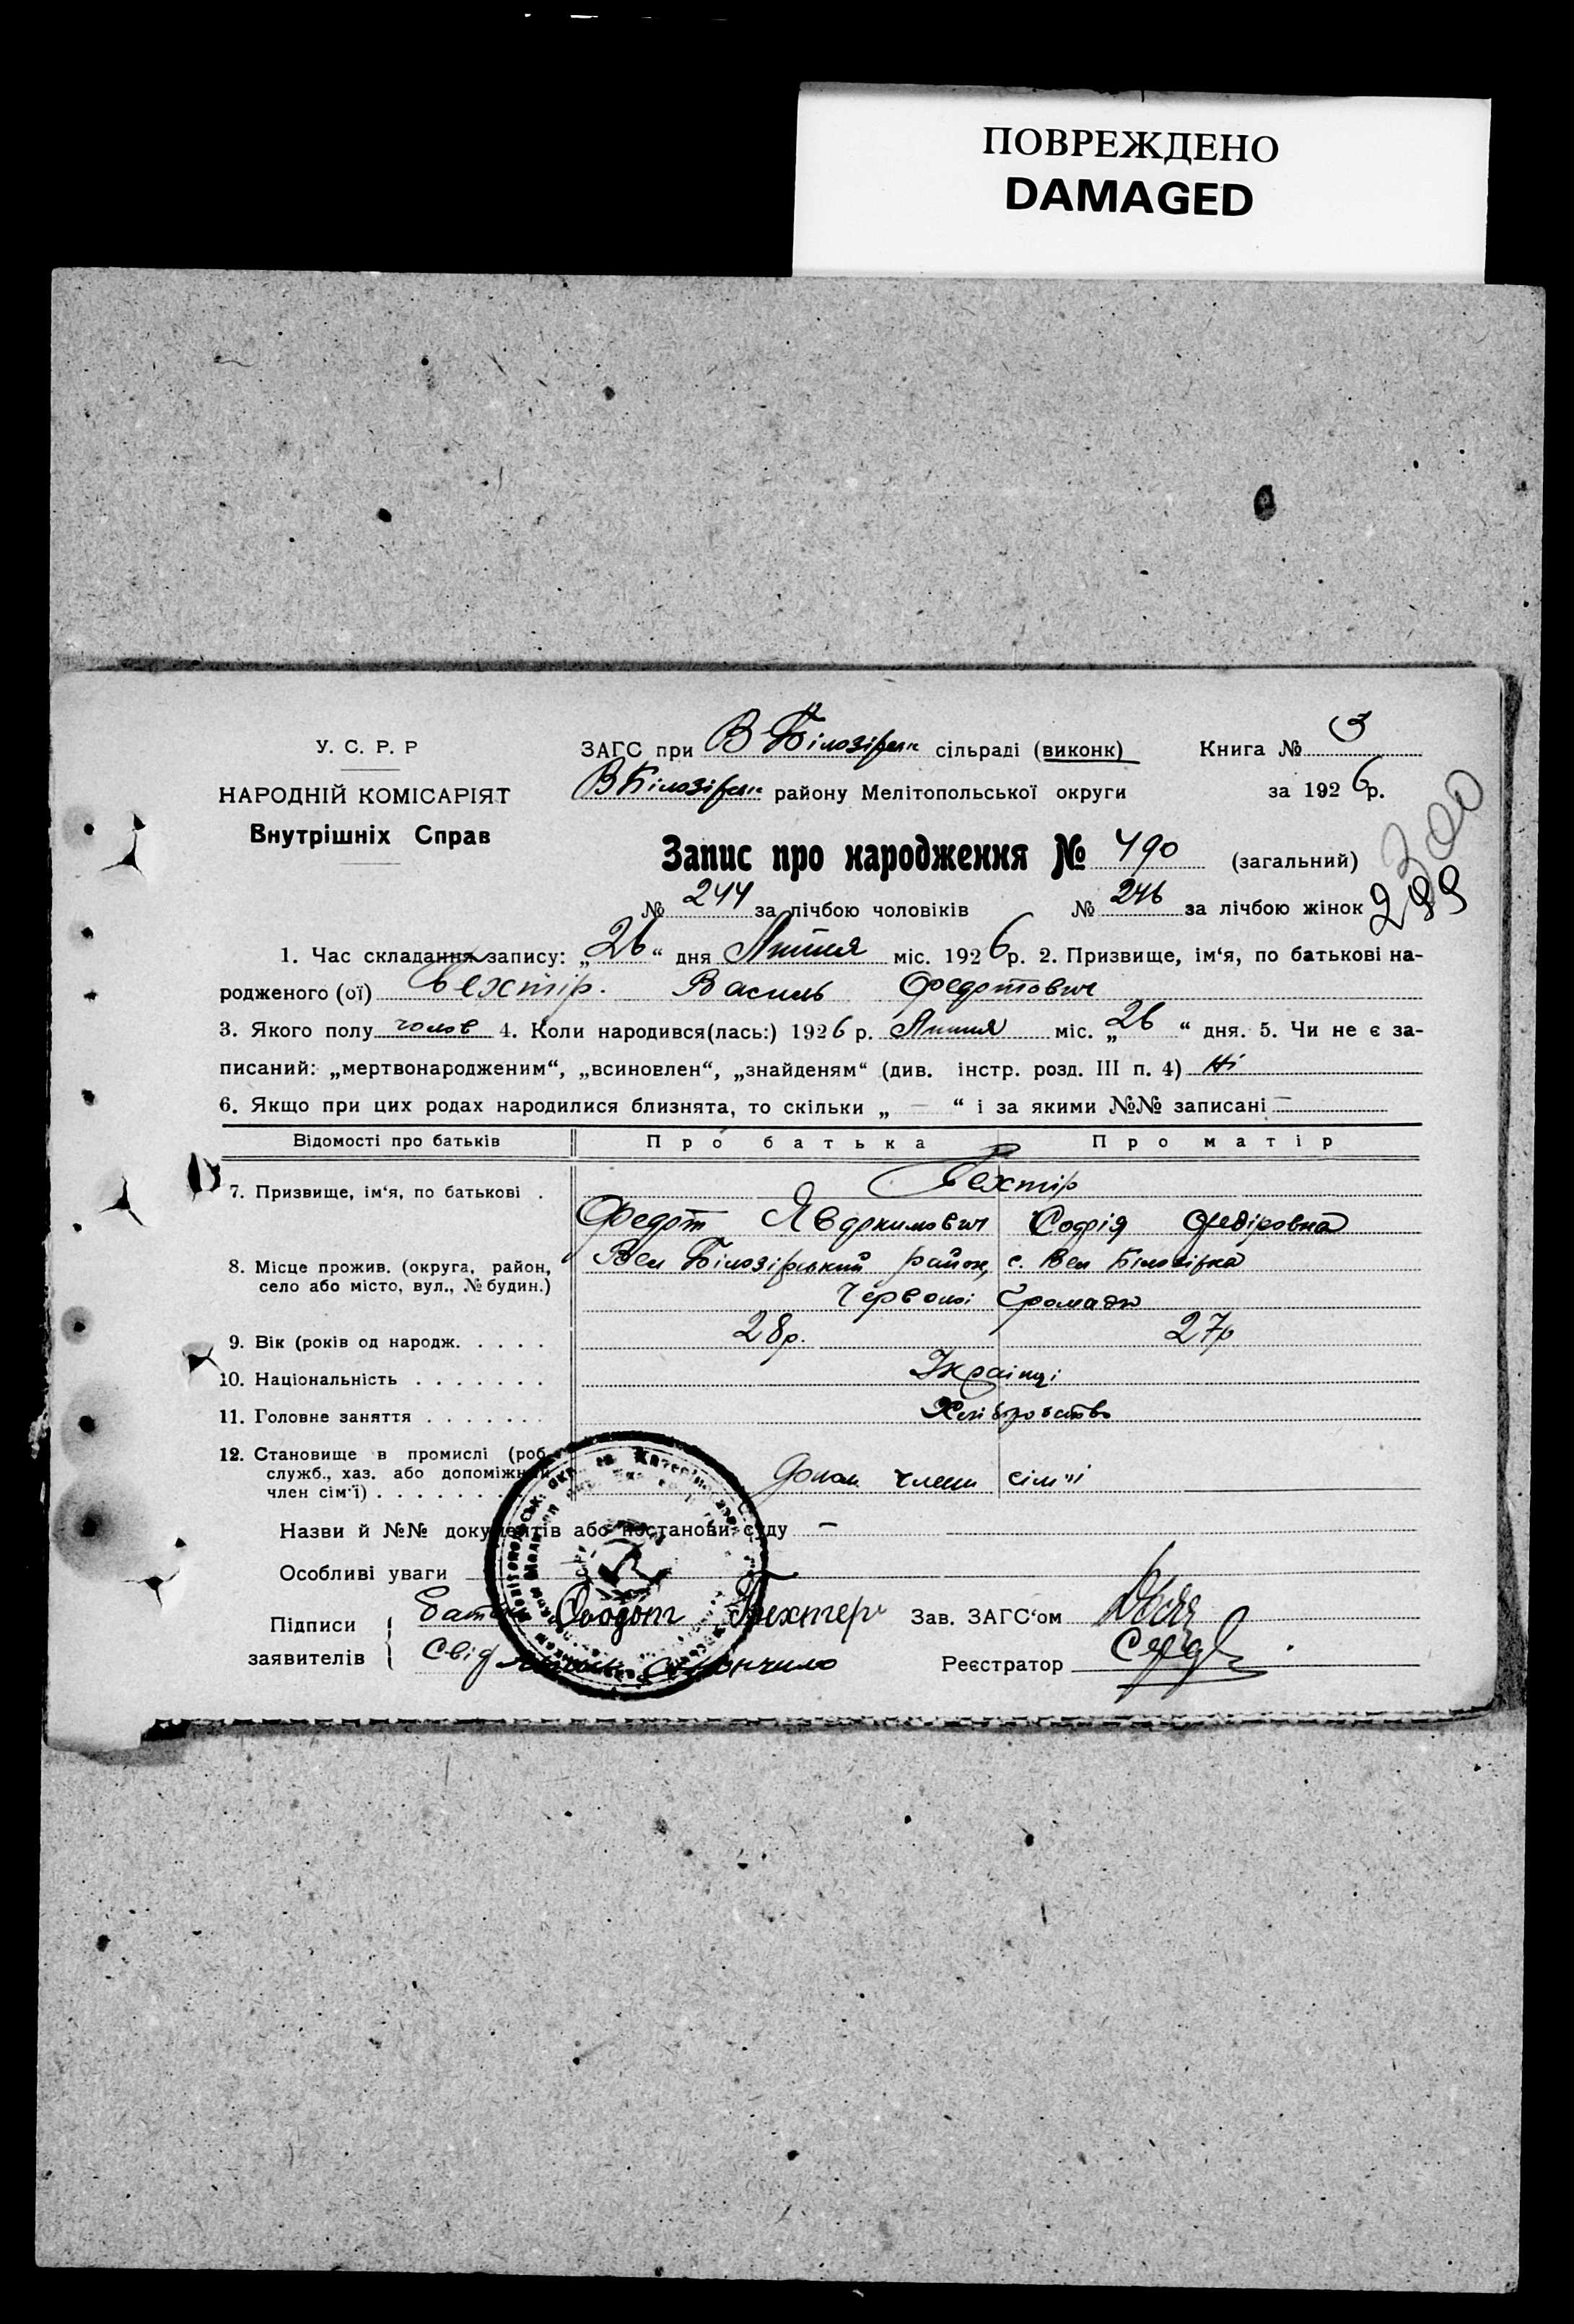 ПОВРЕЖДЕНО
DAMAGED
У. С. Р. Р
НАРОДНІЙ КОМІСАРІЯТ
Внутрішніх Справ
ЗАГС при В Білозірськ сільраді (виконк)
Книга № 3
В Білозірськ району Мелітопольської округи
за 1926 р.
Запис про народження № 490 (загальний)
300
№ 244 за лічбою чоловіків № 246 за лічбою жінок
299
1. Час складання запису: „26“ дня Липня міс. 1926 р. 2. Призвище, ім‘я, по батькові на-
родженого (ої) Бехтір. Василь Федотович
3. Якого полу чолов 4. Коли народився(лась:) 1926 р. Липня міс. „26“ дня. 5. Чи не є за-
писаний: „мертвонародженим“, „всиновлен“, „знайденям“ (див. інстр. розд. III п. 4) Ні
6. Якщо при цих родах народилися близнята, то скільки „ — “ і за якими №№ записані —
Відомості про батьків Про батька Про матір
7. Призвище, ім‘я, по батькові . Бехтір
Федот Явдокимович Софія Федіровна
8. Місце прожив. (округа, район, село або місто, вул., № будин.)
Вел Білозірський район, с. Вел Білозірка
Червоної Громади
9. Вік (років од народж. . . . . 28р. 27р
10. Національність . . . . . . . Українці
11. Головне заняття . . . . . . . Хліборобство
12. Становище в промислі (роб.
служб., хаз. або допоміжний
член сім‘ї) . . . . . . . . Допом члени сім'ї
Назви й №№ документів або постанови суду —
Особливі уваги
Підписи
заявителів
Батько Бехтер
Свід
Зав. ЗАГС‘ом
Реєстратор